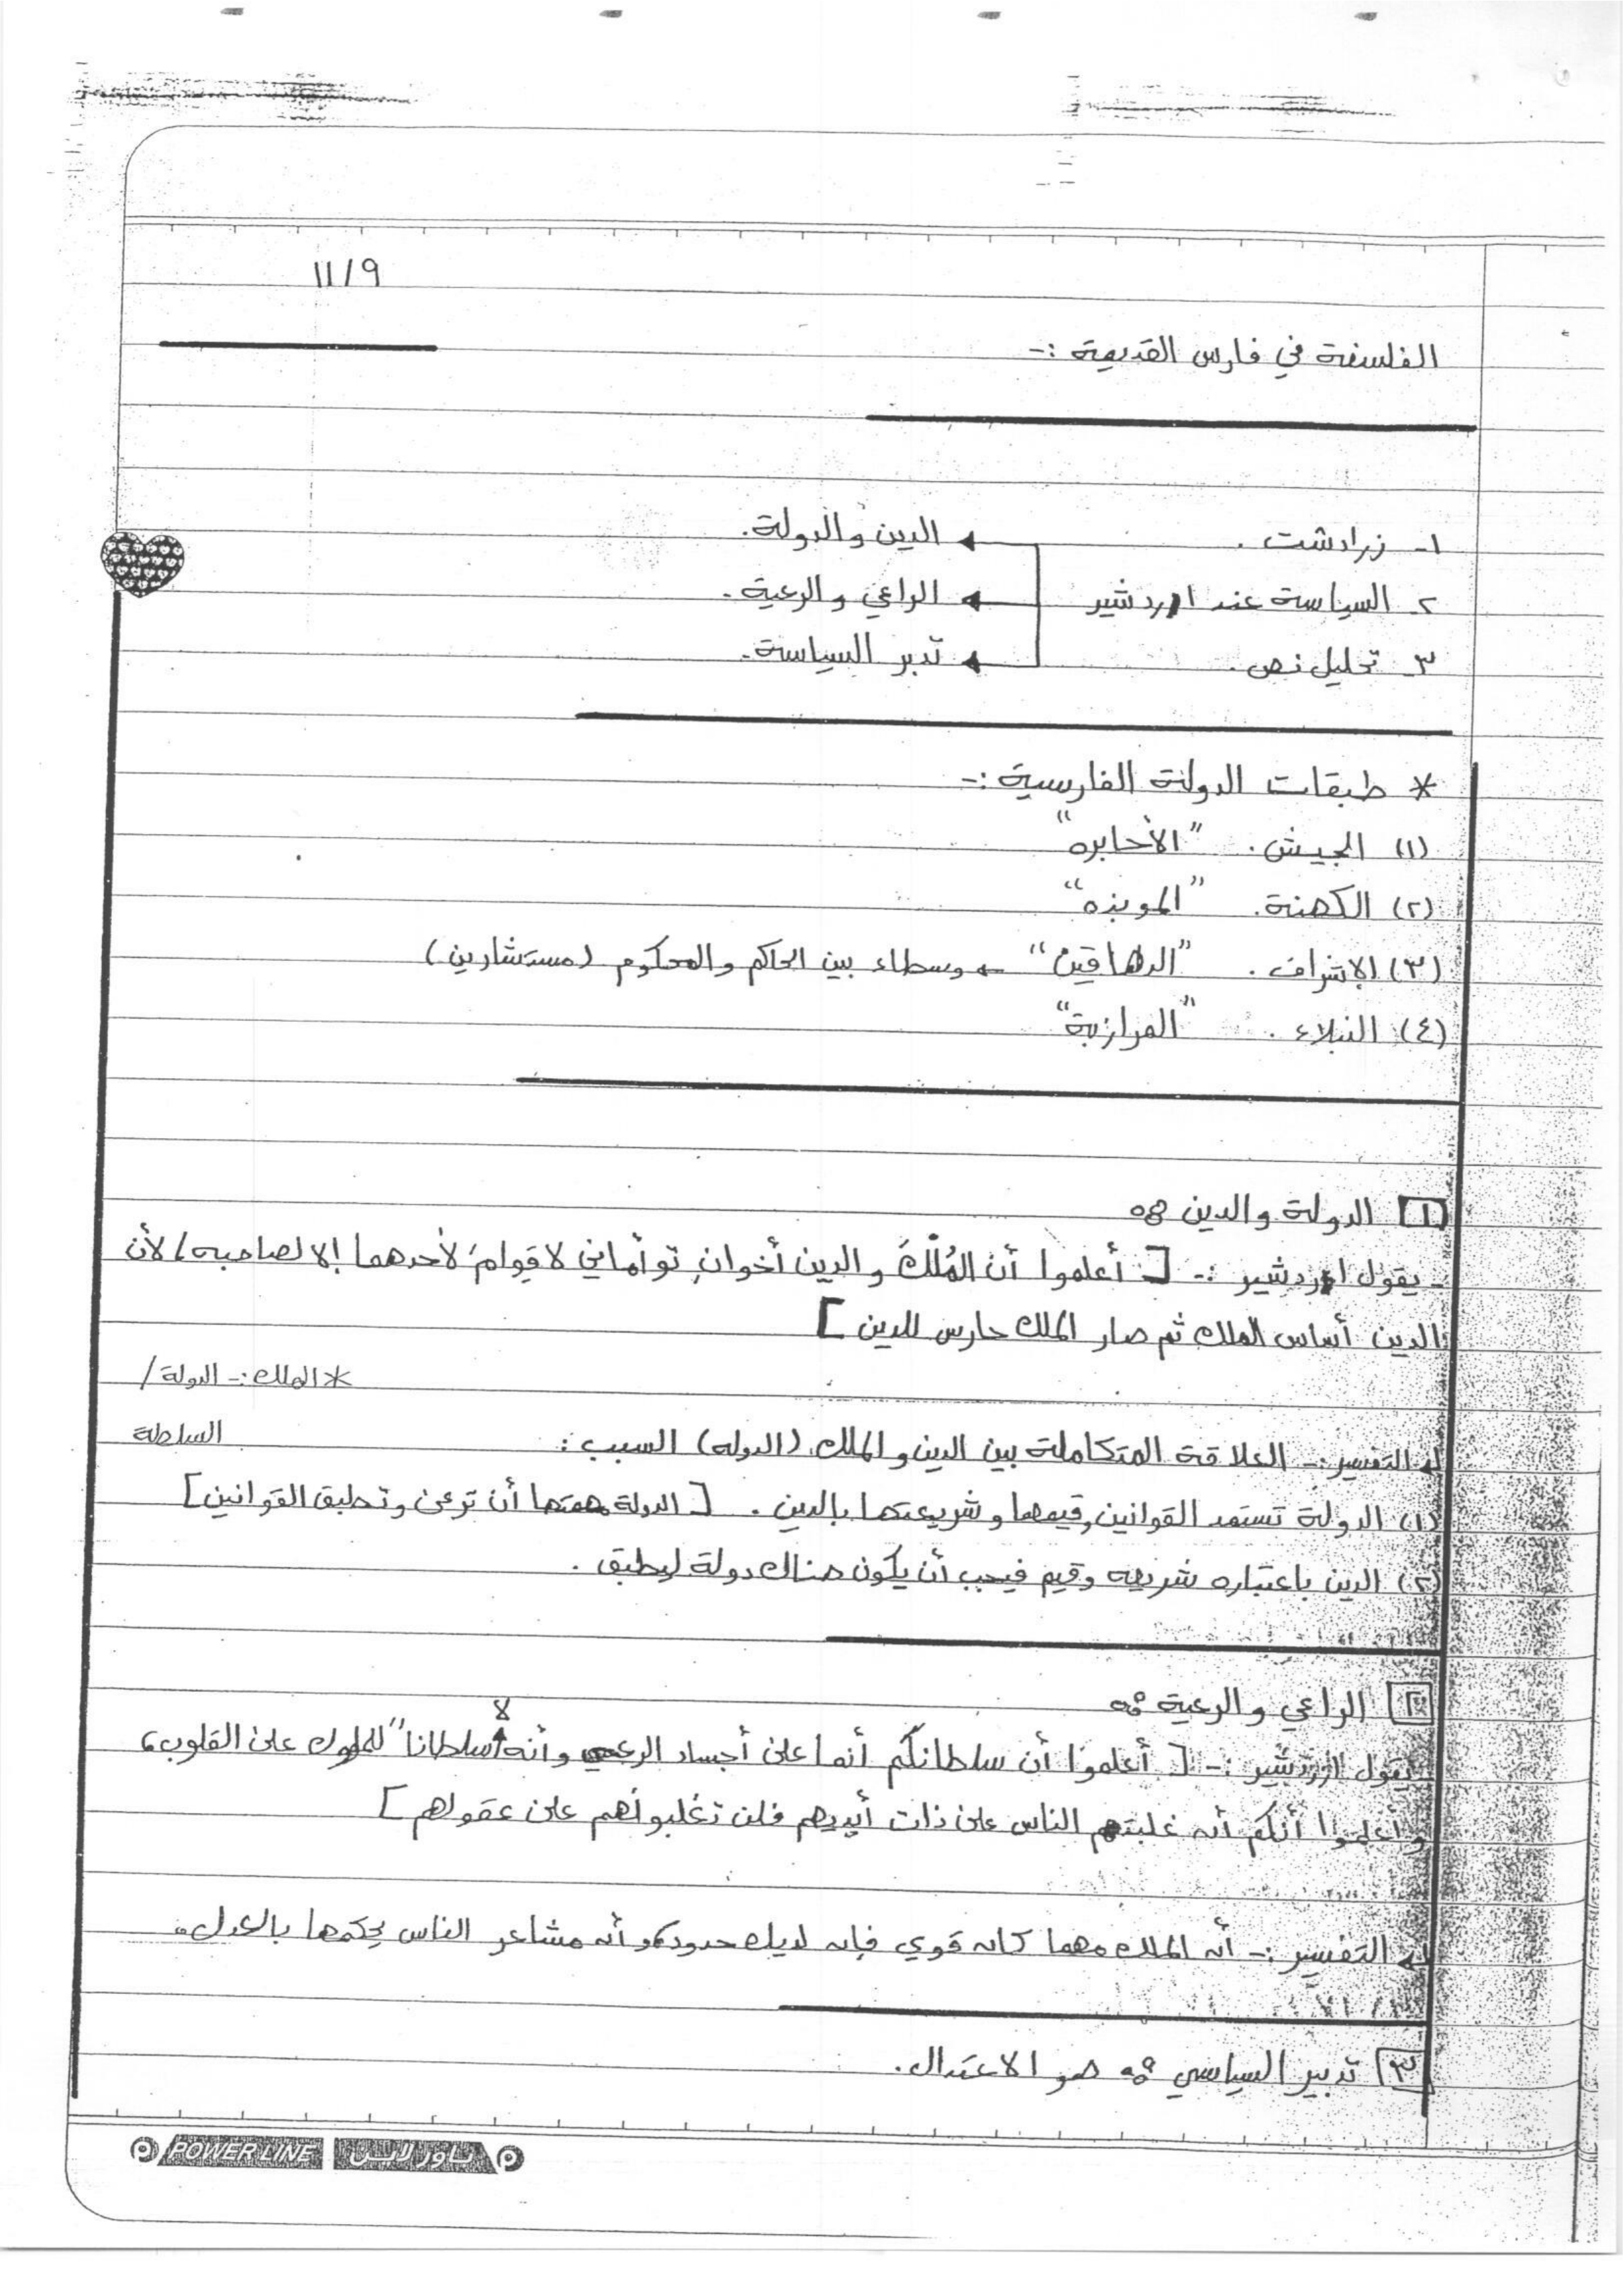 ١١/٩
الفلسفة في فارس القديمة :-
١- زرادشت . ← الدين والدولة.
٢- السياسة عند اردشير ← الراعي والرعية.
٣- تحليل نص. ← تدبر السياسة.
* طبقات الدولة الفارسية :-
(١) الجيش. "الأحابره"
(٢) الكهنة. "الموبذه"
(٣) الاشراف. "الدهاقين" ← وسطاء بين الحاكم والمحكوم (مستشارين)
(٤) النبلاء. "المرازبة"
١ الدولة والدين :
- يقول اردشير :- [ أعلموا أن المُلْكَ والدين أخوان توأماني لا قوام لأحدهما إلا لصاحبه / لأن
الدين أساس الملك ثم صار الملك حارس للدين ]
* الملك :- الدولة /
السلطة
التفسير :- العلاقة المتكاملة بين الدين والملك (الدوله) السبب :
(١) الدولة تستمد القوانين وقيمها وشريعتها بالدين . [ الدولة همتها أن ترعى وتطبق القوانين ]
(٢) الدين باعتباره شريعه وقيم فيجب أن يكون هناك دولة ليطبق .
٢ الراعي والرعية :
- يقول اردشير :- [ أعلموا أن سلطانكم أنما على أجساد الرعيه وأنه لا سلطانا" للملوك على القلوب،
وأعلموا أنكم أنه غلبتم الناس على ذات أيديهم فلن تغلبونهم على عقولهم ]
التفسير :- أنه الملك مهما كانه قوي فإنه لديك حدود، وأنه مشاعر الناس يحكمها بالعدل.
٣ تدبير السياسي : هو الاعتدال.
POWER LINE باور لايـن